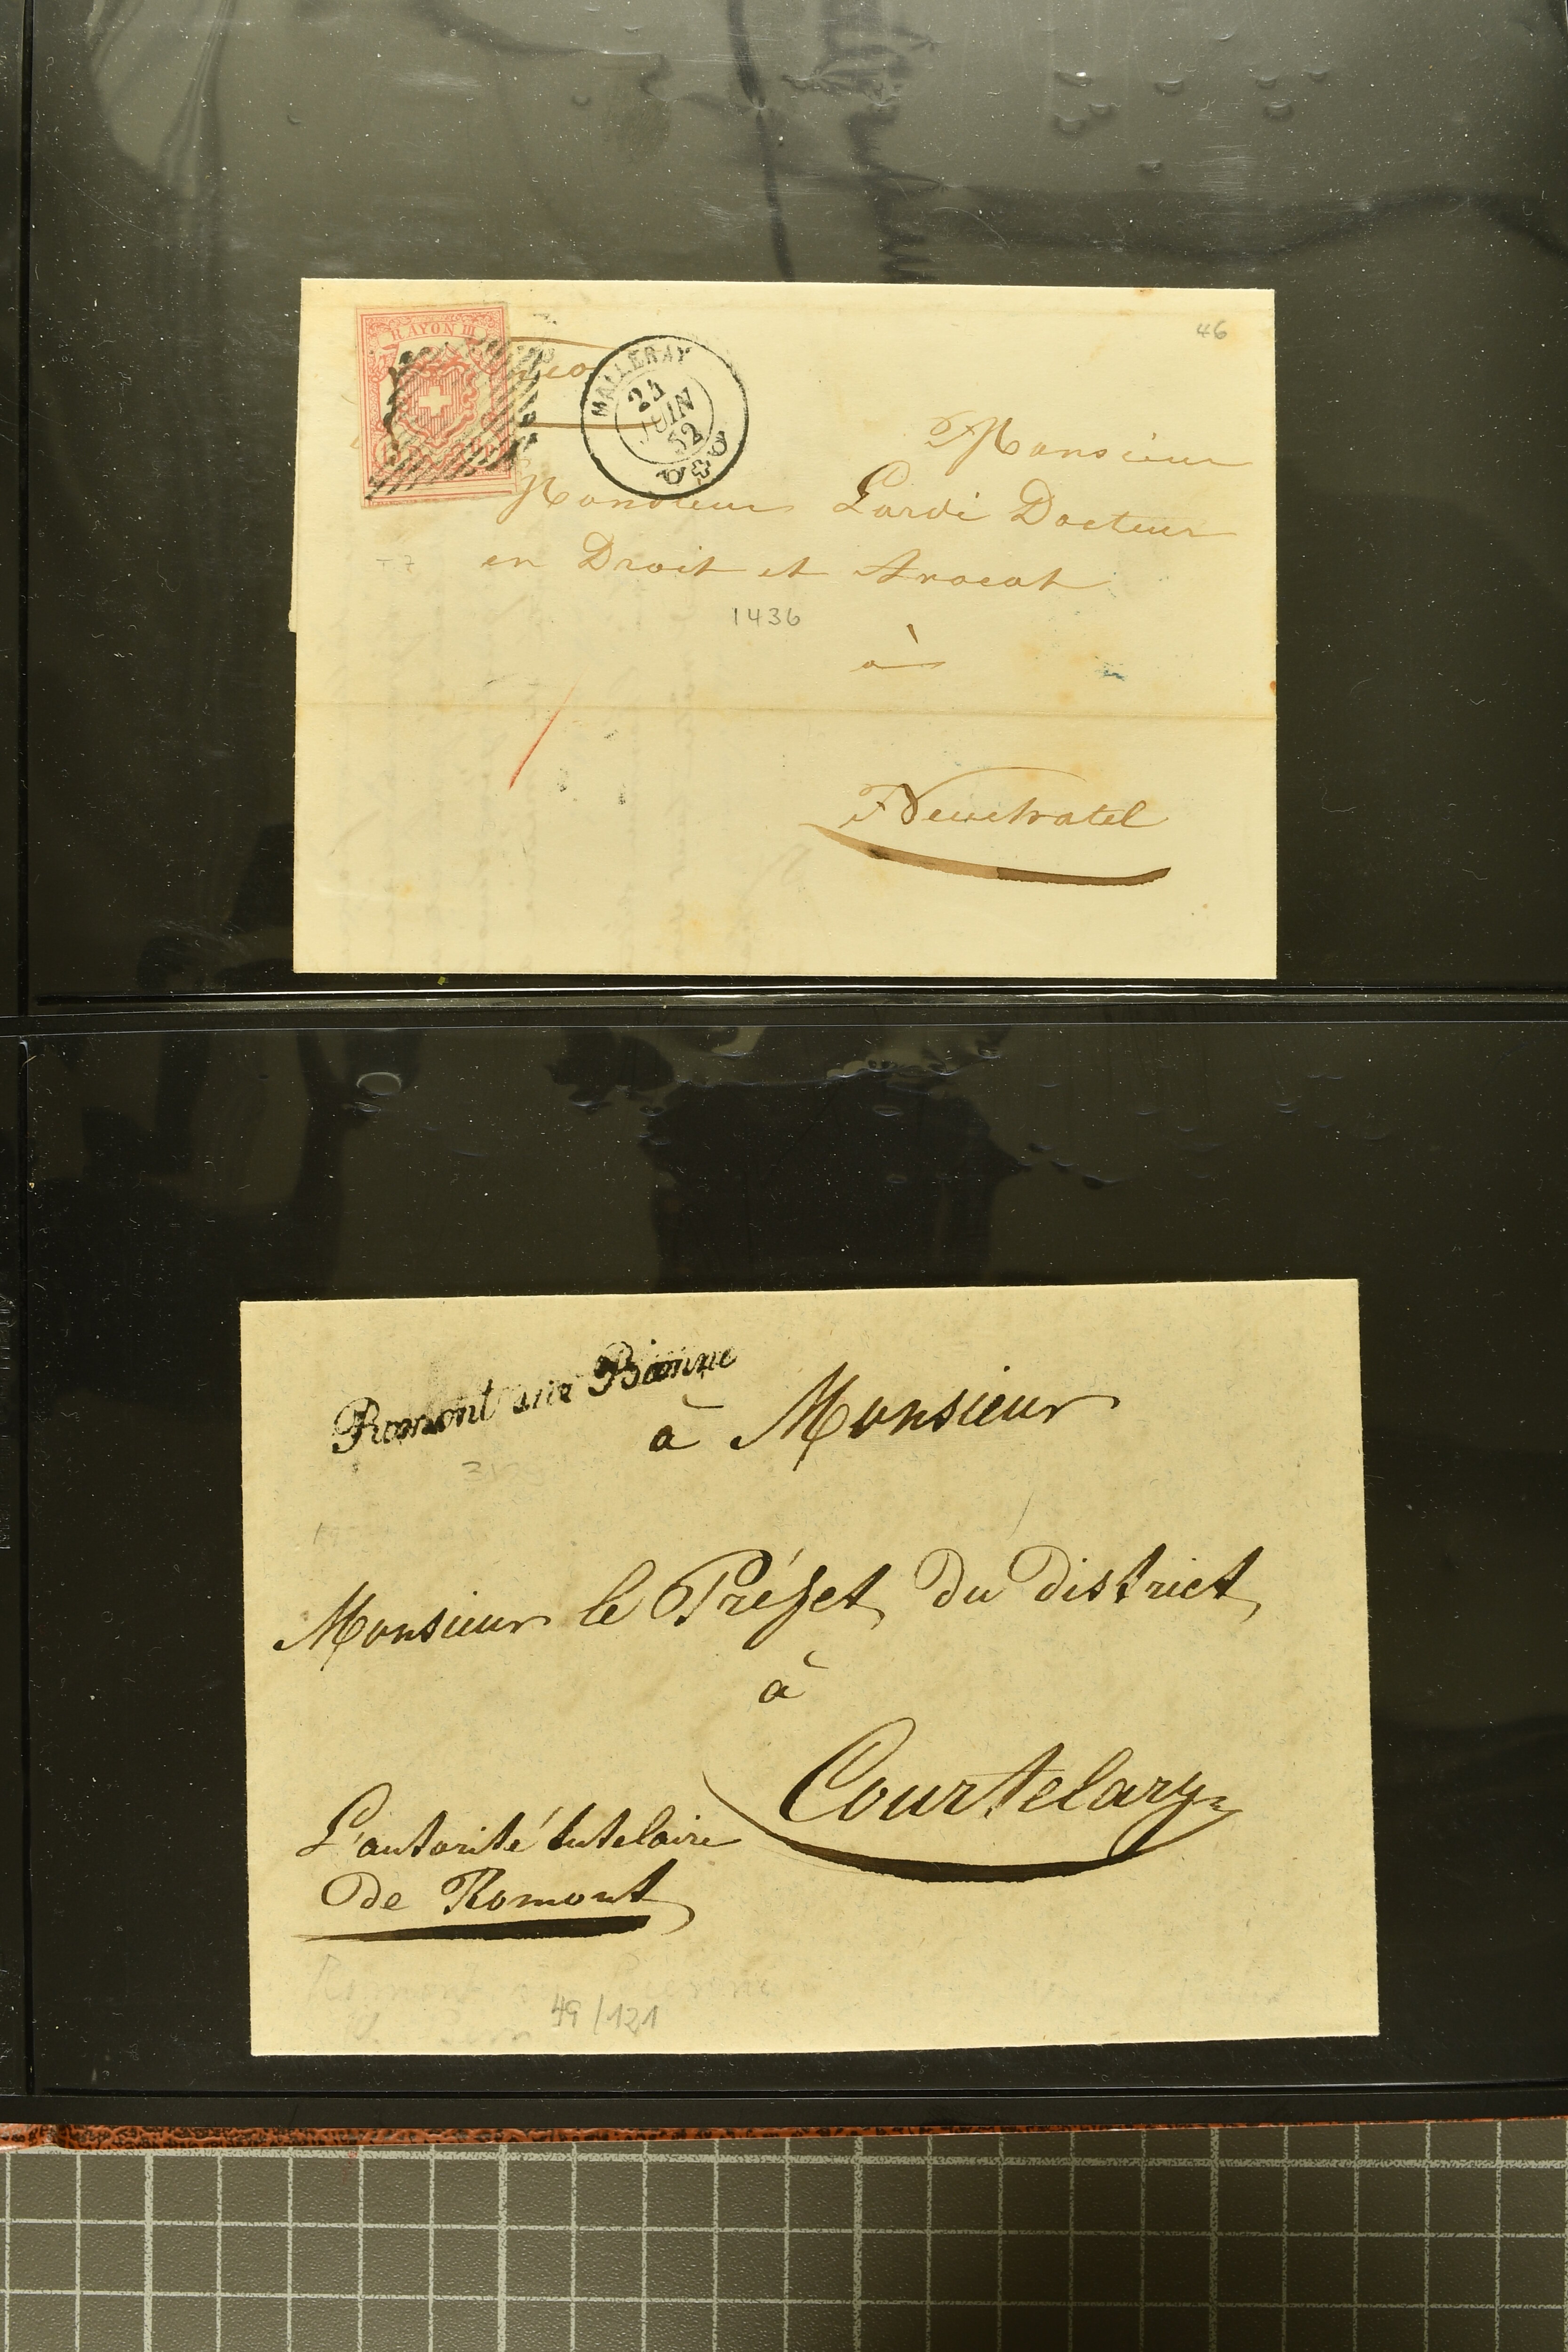 RAYON III
MALLERAY
24
JUIN
52
46
Monsieur
Monsieur Lardi Docteur
en Droit et Avocat
1436
à
Neuchatel
Romont sur Bienne
à Monsieur
Monsieur le Préfet du district
à
Courtelary
L'autorité tutelaire
de Romont
Romont
49/121